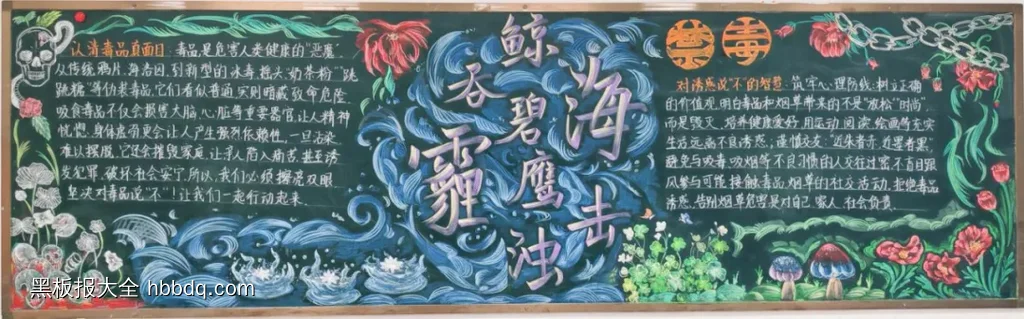 认清毒品真面目：毒品是危害人类健康的“恶魔”
从传统鸦片、海洛因，到新型的冰毒、摇头、奶茶粉“跳
跳糖”等伪装毒品，它们看似普通，实则暗藏致命危险。
吸食毒品不仅会损害大脑、心脏等重要器官，让人精神
恍惚、身体虚弱更会让人产生强烈依赖性，一旦沾染
难以摆脱，它还会摧毁家庭，让亲人陷入痛苦，甚至诱
发犯罪，破坏社会安宁。所以，我们必须擦亮双眼，
坚决对毒品说“不”！让我们一起行动起来
鲸吞碧海
鹰击浊霾
禁毒
对诱惑说“不”的智慧：筑牢心理防线，树立正确
的价值观，明白毒品和烟草带来的不是“放松”“时尚”
而是毁灭。培养健康爱好，用运动、阅读、绘画等充实
生活，远离不良诱惑，谨慎交友：“近朱者赤，近墨者黑”
避免与吸毒、吸烟等不良习惯的人交往过密，不盲目跟
风参与可能接触毒品、烟草的社交活动，拒绝毒品
诱惑，告别烟草危害是对自己、家人、社会负责
黑板报大全 hbbdq.com